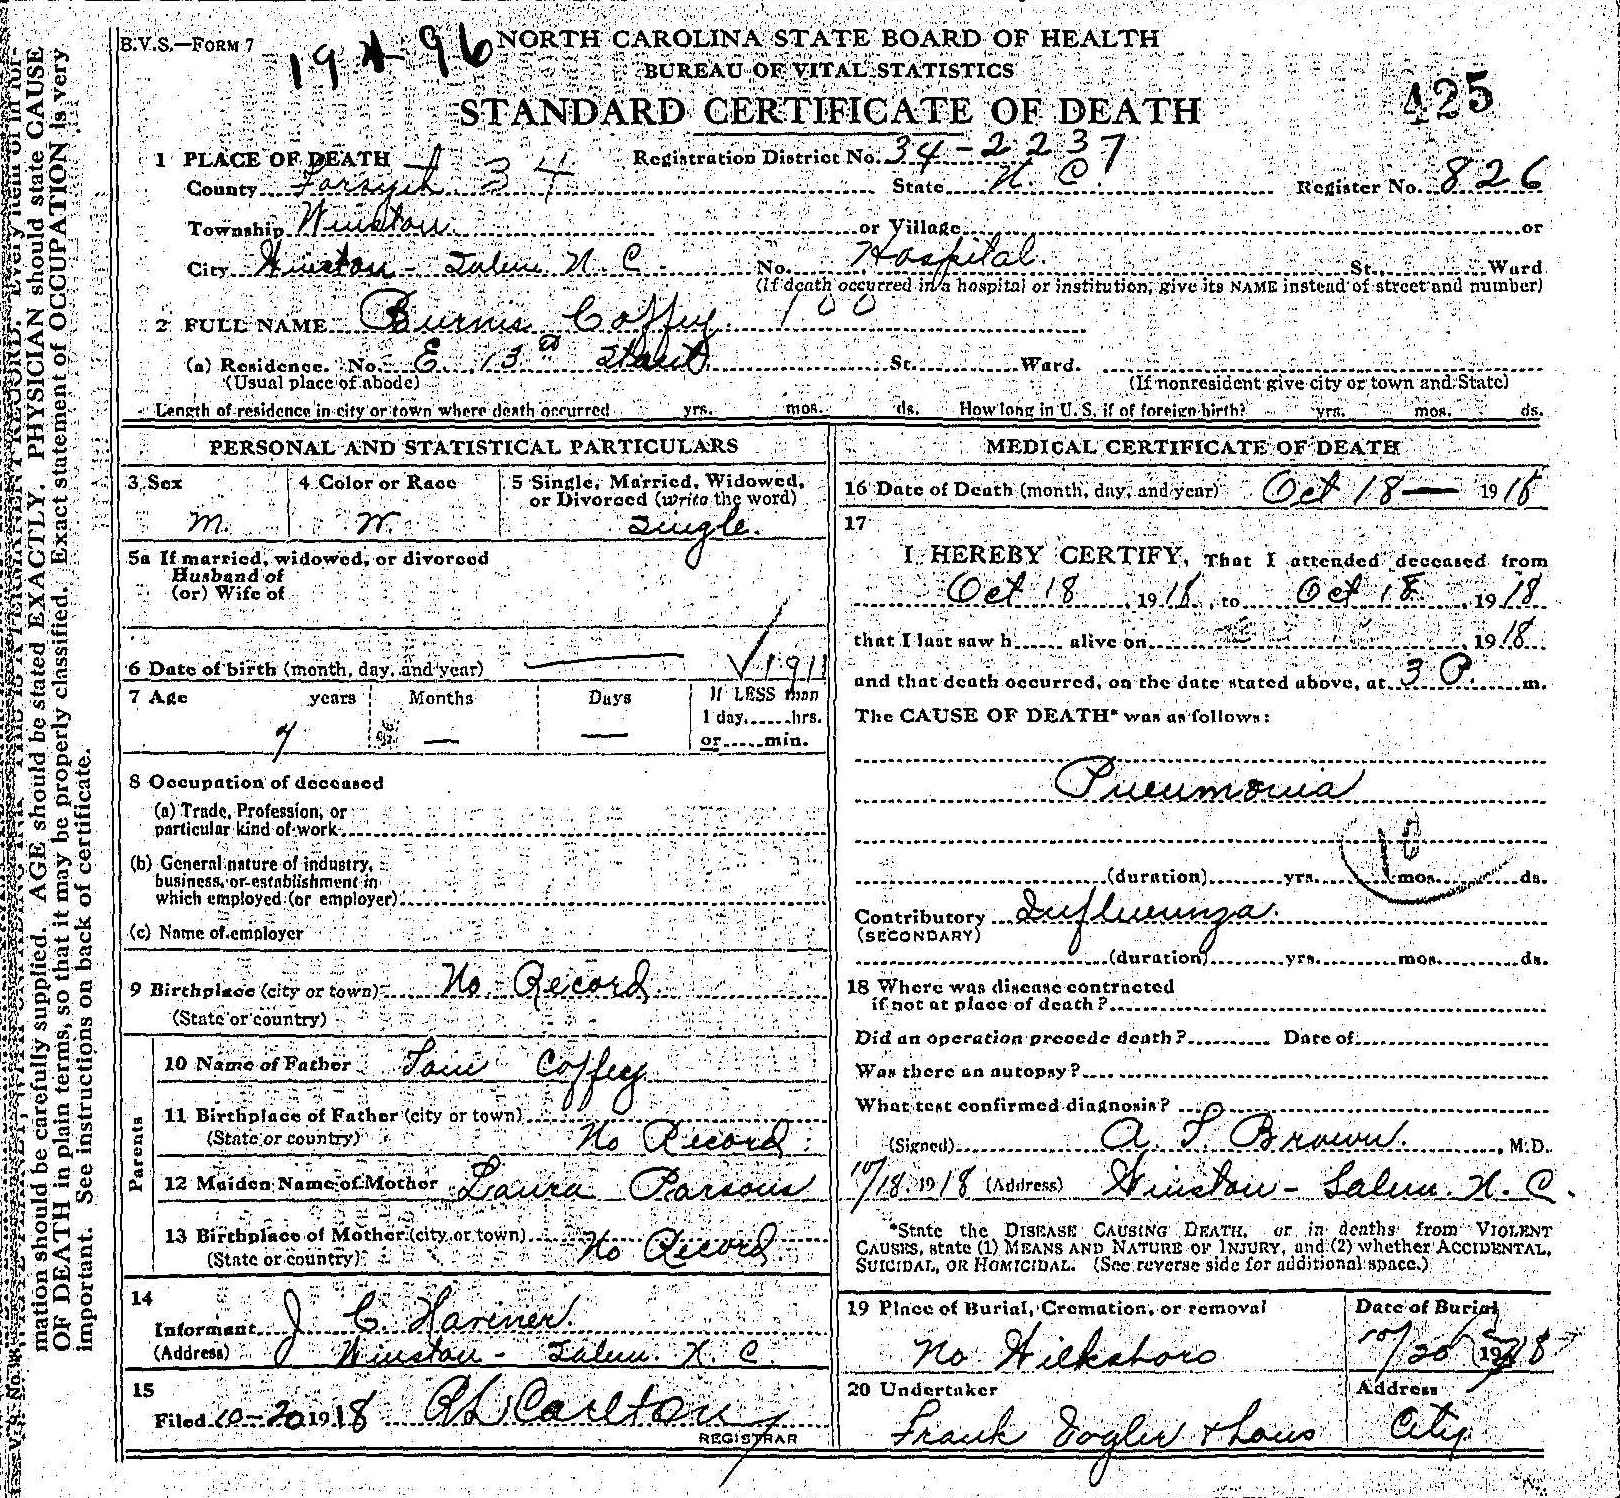 B.V.S.—FORM 7
19 96
NORTH CAROLINA STATE BOARD OF HEALTH
BUREAU OF VITAL STATISTICS
STANDARD CERTIFICATE OF DEATH
425
1 PLACE OF DEATH
Registration District No. 34-2237
County Forsyth 34 State N. C. Register No. 826
Township Winston or Village or
City Winston-Salem N. C. No. Hospital. St. Ward
(If death occurred in a hospital or institution, give its NAME instead of street and number)
2 FULL NAME Burnis Coffey 100
(a) Residence. No. E. 13th Street St. Ward.
(Usual place of abode) (If nonresident give city or town and State)
Length of residence in city or town where death occurred yrs. mos. ds. How long in U. S. if of foreign birth? yrs. mos. ds.
PERSONAL AND STATISTICAL PARTICULARS
3 Sex
M.
4 Color or Race
W.
5 Single, Married, Widowed,
or Divorced (write the word)
Single.
5a If married, widowed, or divorced
Husband of
(or) Wife of
6 Date of birth (month, day, and year) — 1911
7 Age years Months Days If LESS than
1 day......hrs.
7 — — or.....min.
8 Occupation of deceased
(a) Trade, Profession, or
particular kind of work
(b) General nature of industry,
business, or establishment in
which employed (or employer)
(c) Name of employer
9 Birthplace (city or town) No Record
(State or country)
Parents
10 Name of Father Tom Coffey
11 Birthplace of Father (city or town)
(State or country) No Record
12 Maiden Name of Mother Laura Parsons
13 Birthplace of Mother (city or town)
(State or country) No Record
14
Informant J C. Hariner.
(Address) Winston-Salem. N. C.
15
Filed 10-20 1918 RL Carlton
REGISTRAR
MEDICAL CERTIFICATE OF DEATH
16 Date of Death (month, day, and year) Oct 18— 1918
17
I HEREBY CERTIFY, That I attended deceased from
Oct 18, 1918, to Oct 18, 1918
that I last saw h...... alive on , 1918
and that death occurred, on the date stated above, at 3 P. m.
The CAUSE OF DEATH* was as follows:
Pneumonia
10
(duration) yrs. mos. ds.
Contributory Influenza.
(SECONDARY)
(duration) yrs. mos. ds.
18 Where was disease contracted
if not at place of death?
Did an operation precede death? Date of
Was there an autopsy?
What test confirmed diagnosis?
(Signed) A. T. Brown. , M.D.
10/18, 1918 (Address) Winston-Salem. N. C.
*State the DISEASE CAUSING DEATH, or in deaths from VIOLENT
CAUSES, state (1) MEANS AND NATURE OF INJURY, and (2) whether ACCIDENTAL,
SUICIDAL, OR HOMICIDAL. (See reverse side for additional space.)
19 Place of Burial, Cremation, or removal
No Wilksboro
Date of Burial
10/20 1918
20 Undertaker
Frank Vogler & Sons
Address
City
mation should be carefully supplied. AGE should be stated EXACTLY. PHYSICIAN should state CAUSE
OF DEATH in plain terms, so that it may be properly classified. Exact statement of OCCUPATION is very
important. See instructions on back of certificate.